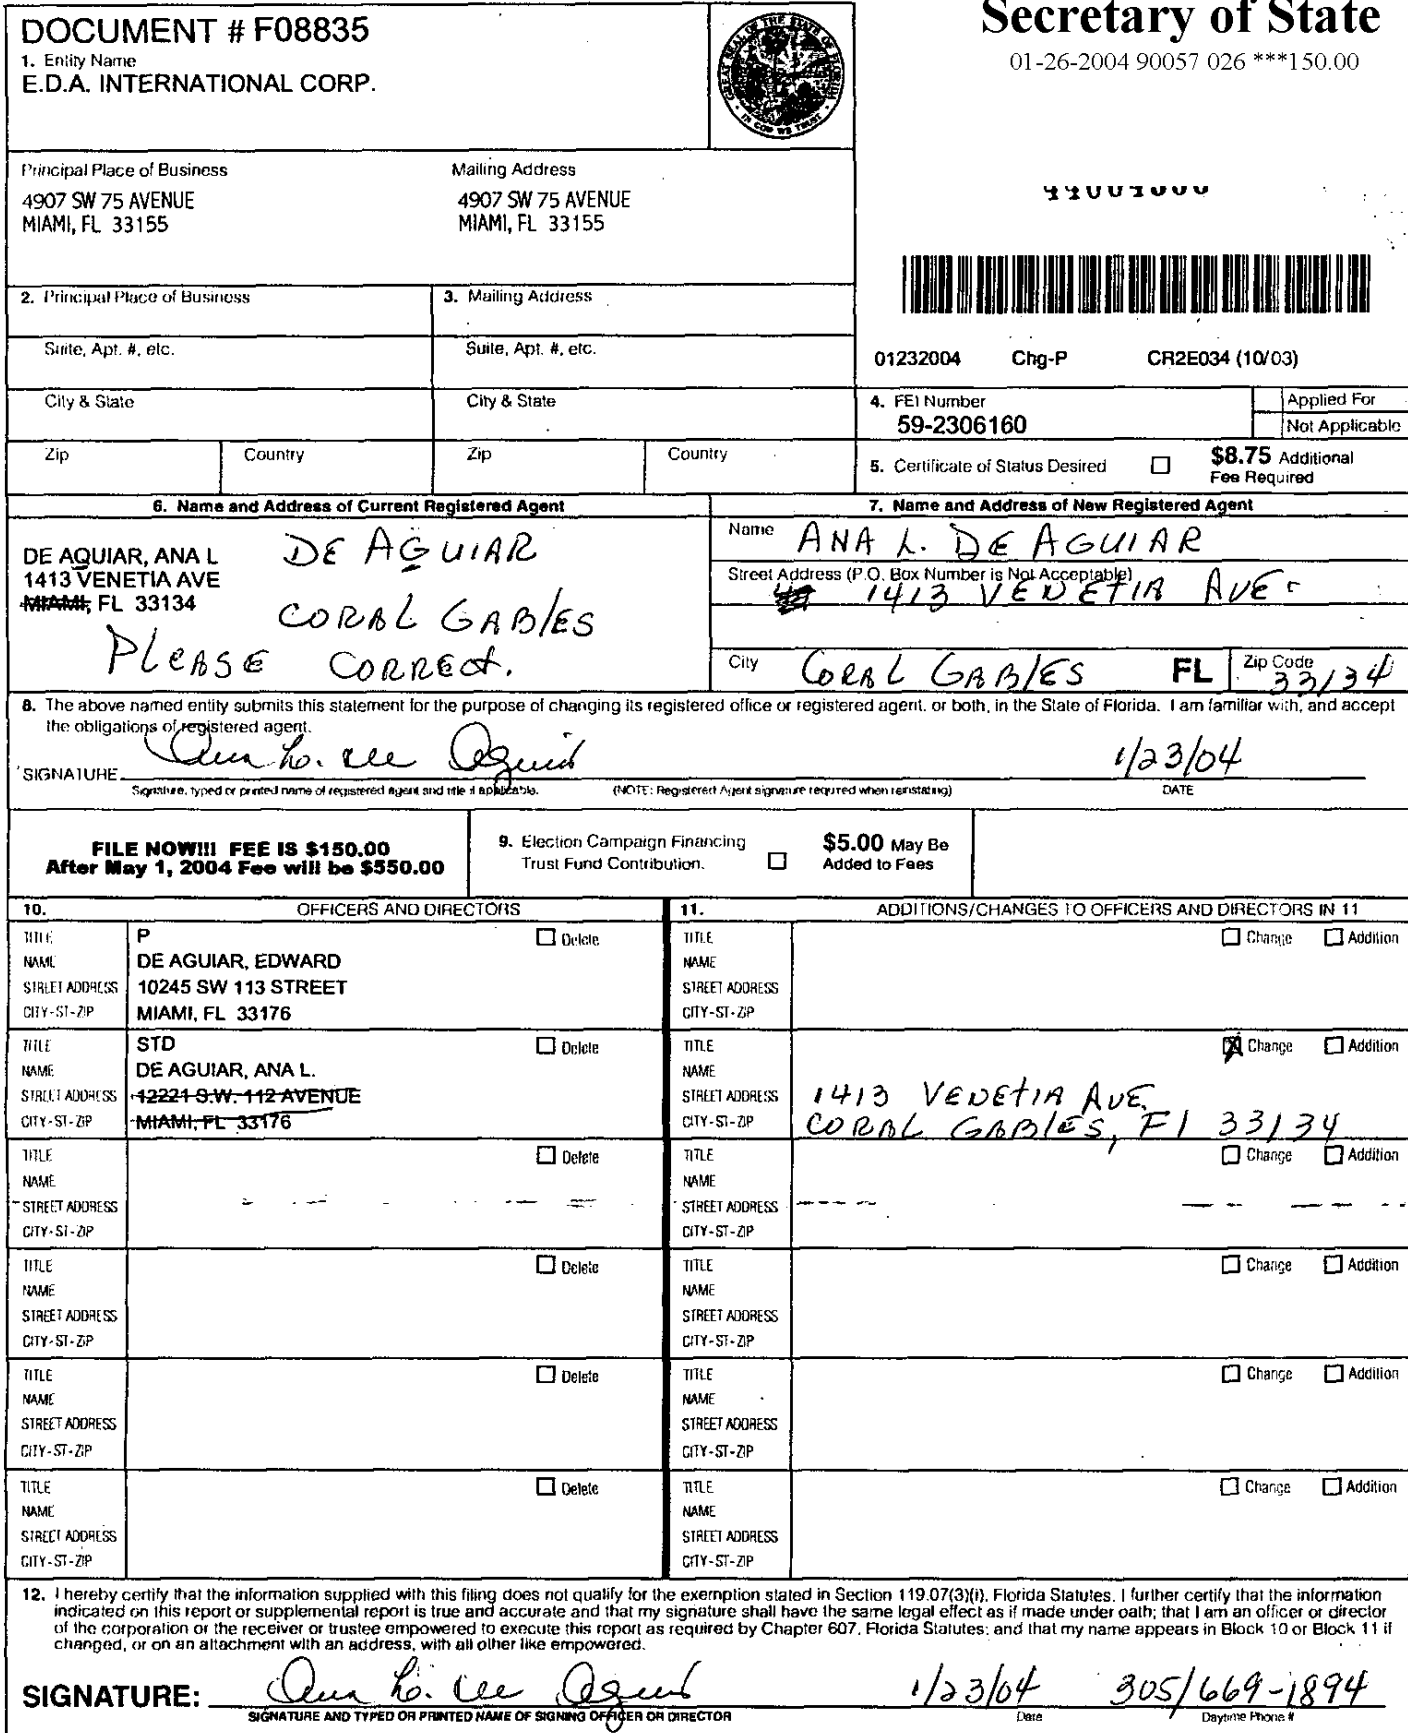 Secretary of State
01-26-2004 90057 026 ***150.00
DOCUMENT # F08835
1. Entity Name
E.D.A. INTERNATIONAL CORP.
GREAT SEAL OF THE STATE OF FLORIDA
IN GOD WE TRUST
Principal Place of Business
4907 SW 75 AVENUE
MIAMI, FL 33155
Mailing Address
4907 SW 75 AVENUE
MIAMI, FL 33155
2. Principal Place of Business
3. Mailing Address
Suite, Apt. #, etc.
Suite, Apt. #, etc.
City & State
City & State
Zip
Country
Zip
Country
01232004 Chg-P CR2E034 (10/03)
4. FEI Number
59-2306160
Applied For
Not Applicable
5. Certificate of Status Desired
$8.75 Additional
Fee Required
6. Name and Address of Current Registered Agent
DE AQUIAR, ANA L
1413 VENETIA AVE
MIAMI, FL 33134
DE AGUIAR
CORAL GABlES
PLEASE CORRECt.
7. Name and Address of New Registered Agent
Name ANA L. DE AGUIAR
Street Address (P.O. Box Number is Not Acceptable)
1413 VENETIA AVE
City CORAL GABlES FL Zip Code 33134
8. The above named entity submits this statement for the purpose of changing its registered office or registered agent, or both, in the State of Florida. I am familiar with, and accept
the obligations of registered agent.
SIGNATURE Ana L. de Aguiar 1/23/04
Signature, typed or printed name of registered agent and title if applicable. (NOTE: Registered Agent signature required when reinstating) DATE
FILE NOW!!! FEE IS $150.00
After May 1, 2004 Fee will be $550.00
9. Election Campaign Financing
Trust Fund Contribution.
$5.00 May Be
Added to Fees
10. OFFICERS AND DIRECTORS
11. ADDITIONS/CHANGES TO OFFICERS AND DIRECTORS IN 11
TITLE P Delete
NAME DE AGUIAR, EDWARD
STREET ADDRESS 10245 SW 113 STREET
CITY-ST-ZIP MIAMI, FL 33176
TITLE Change Addition
NAME
STREET ADDRESS
CITY-ST-ZIP
TITLE STD Delete
NAME DE AGUIAR, ANA L.
STREET ADDRESS 12221 S.W. 112 AVENUE
CITY-ST-ZIP MIAMI, FL 33176
TITLE X Change Addition
NAME
STREET ADDRESS 1413 VENEtIA AVE.
CITY-ST-ZIP CORAL GABlES, Fl 33134
TITLE Delete
NAME
STREET ADDRESS
CITY-ST-ZIP
TITLE Change Addition
NAME
STREET ADDRESS
CITY-ST-ZIP
TITLE Delete
NAME
STREET ADDRESS
CITY-ST-ZIP
TITLE Change Addition
NAME
STREET ADDRESS
CITY-ST-ZIP
TITLE Delete
NAME
STREET ADDRESS
CITY-ST-ZIP
TITLE Change Addition
NAME
STREET ADDRESS
CITY-ST-ZIP
TITLE Delete
NAME
STREET ADDRESS
CITY-ST-ZIP
TITLE Change Addition
NAME
STREET ADDRESS
CITY-ST-ZIP
12. I hereby certify that the information supplied with this filing does not qualify for the exemption stated in Section 119.07(3)(i), Florida Statutes. I further certify that the information
indicated on this report or supplemental report is true and accurate and that my signature shall have the same legal effect as if made under oath; that I am an officer or director
of the corporation or the receiver or trustee empowered to execute this report as required by Chapter 607, Florida Statutes; and that my name appears in Block 10 or Block 11 if
changed, or on an attachment with an address, with all other like empowered.
SIGNATURE: Ana L. de Aguiar 1/23/04 305/669-1894
SIGNATURE AND TYPED OR PRINTED NAME OF SIGNING OFFICER OR DIRECTOR Date Daytime Phone #